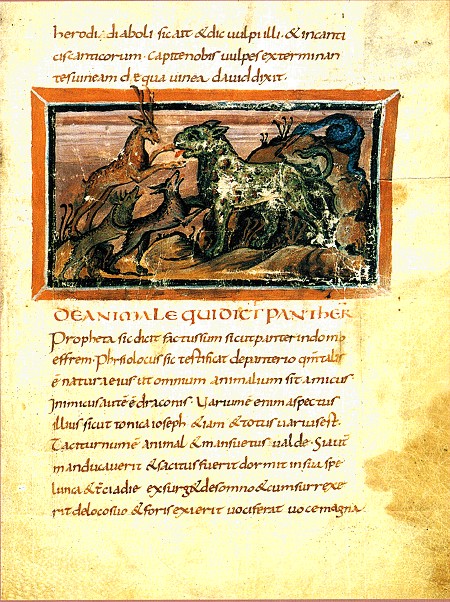 herodi, diaboli sicut & dic uulpi illi · & in canti
cis canticorum · Capite nobis uulpes exterminan
tes uineam de qua uinea dauid dixit ·
DE ANIMALE QUI DICT PANTHER
Propheta sic dicit factus sum sicut panter in dom
effrem · Phisiolocus sic testificat de panterio qm talis
ē natura eius ut omnium animalium sit amicus
inimicus autē ē draconis · Uarium ē enim aspectus
illius sicut tonica ioseph & iam & totus uarius est ·
Taciturnum ē animal & mansuetus ualde · Si aut
manducauerit & saciatus fuerit dormit in sua spe
lunca & tercia die exsurg& de somno & cum surrexe
rit de loco suo & foris exierit uociferat uoce magna